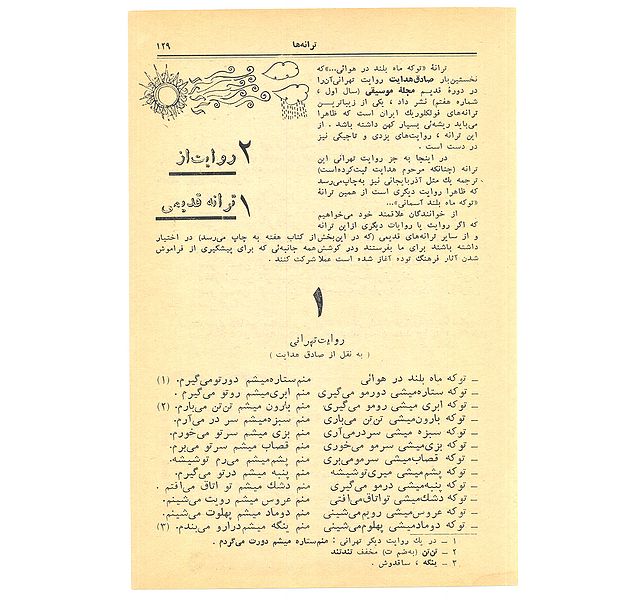 ترانه‌ها
۱۲۹
ترانهٔ «توکه ماه بلند در هوائی...»که
نخستین‌بار صادق‌هدایت روایت تهرانی‌آن‌را
در دورهٔ قدیم مجلهٔ موسیقی (سال اول ،
شماره هفتم) نشر داد ، یکی از زیباترین
ترانه‌های فولکلوریك ایران است که ظاهرا
می‌باید ریشه‌ئی بسیار کهن داشته باشد . از
این ترانه ، روایت‌های یزدی و تاجیکی نیز
در دست است .
در اینجا به جز روایت تهرانی این
ترانه (چنانکه مرحوم هدایت ثبت‌کرده‌است)
ترجمه یك مثل آذربایجانی نیز به‌چاپ‌می‌رسد
که ظاهرا روایت دیگری است از همین ترانهٔ
«توکه ماه بلند آسمانی...».
از خوانندگان علاقمند خود می‌خواهیم
که اگر روایت یا روایات دیگری ازاین ترانه
و از سایر ترانه‌های قدیمی (که در این‌بخش‌از کتاب هفته به چاپ می‌رسد) در اختیار
داشته باشند برای ما بفرستند ودر کوشش‌همه جانبه‌ئی که برای پیشگیری از فراموش
شدن آثار فرهنگ توده آغاز شده است عملا شرکت کنند .
۲ روایت‌از
۱ ترانه قدیمی
۱
روایت‌تهرانی
( به نقل از صادق هدایت )
ــ توکه ماه بلند در هوائی منم‌ستاره‌میشم دورتومی‌گیرم. (۱)
ــ توکه ستاره‌میشی دورمو می‌گیری منم ابری‌میشم روتو می‌گیرم .
ــ توکه ابری میشی رومو می‌گیری منم بارون میشم تن‌تن می‌بارم. (۲)
ــ توکه بارون‌میشی تن‌تن می‌باری منم سبزه‌میشم سر در می‌آرم.
ــ توکه سبزه میشی سردرمی‌آری منم بزی میشم سرتو می‌خورم.
ــ توکه بزی‌میشی سرمو می‌خوری منم قصاب میشم سرتو می‌برم.
ــ توکه قصاب‌میشی سرمومی‌بری منم پشم‌میشم می‌رم توشیشه.
ــ توکه پشم‌میشی میری‌توشیشه منم پنبه میشم درتو می‌گیرم.
ــ توکه پنبه‌میشی درمو می‌گیری منم دشك میشم تو اتاق می‌افتم .
ــ توکه دشك‌میشی تواتاق‌می‌افتی منم عروس میشم رویت می‌شینم.
ــ توکه عروس‌میشی رویم‌می‌شینی منم دوماد میشم پهلوت می‌شینم.
ــ توکه دومادمیشی پهلوم‌می‌شینی منم ینگه میشم‌درارو می‌بندم. (۳)
۱ ــ در یك روایت دیگر تهرانی : منم‌ستاره میشم دورت می‌گردم .
۲ ــ تن‌تن (به‌ضم ت) مخفف تندتند
۳ ــ ینگه ، ساقدوش .